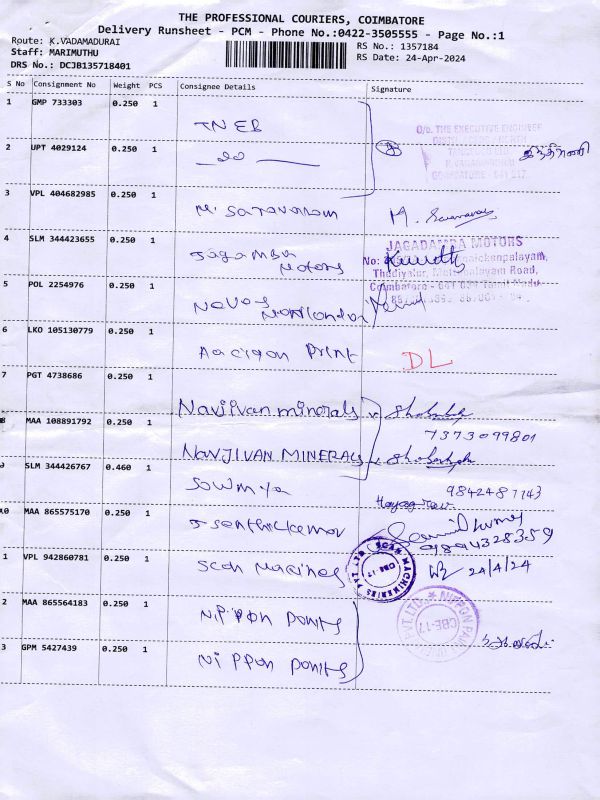 THE PROFESSIONAL COURIERS, COIMBATORE
Delivery Runsheet - PCM - Phone No.:0422-3505555 - Page No.:1
Route: K.VADAMADURAI
RS No.: 1357184
Staff: MARIMUTHU
RS Date: 24-Apr-2024
DRS No.: DCJB135718401
S No Consignment No Weight PCS Consignee Details Signature
1 GMP 733303 0.250 1
TNEB
O/o. THE EXECUTIVE ENGINEER
2 UPT 4029124 0.250 1
COIMBATORE - 641 017.
3 VPL 404682985 0.250 1
M. Saravanan
4 SLM 344423655 0.250 1
Jagamba Motors
JAGADAMBA MOTORS
No:
Thudiyalur, Mettupalayam Road,
Coimbatore - 641 034 Tamil Nadu.
5 POL 2254976 0.250 1
6 LKO 105130779 0.250 1
Print
DL
7 PGT 4738686 0.250 1
Navjivan minerals
7373099801
8 MAA 108891792 0.250 1
NAVJIVAN MINERALS
9 SLM 344426767 0.460 1
Sowmya
9842487143
10 MAA 865575170 0.250 1
J Senthilkumar
9894328359
1 VPL 942860781 0.250 1
Scan Machines
SCAN MACHINERIES PVT LTD
CBE-17
24/4/24
2 MAA 865564183 0.250 1
Nippon
NIPPON
PVT LTD
CBE-17
3 GPM 5427439 0.250 1
Nippon